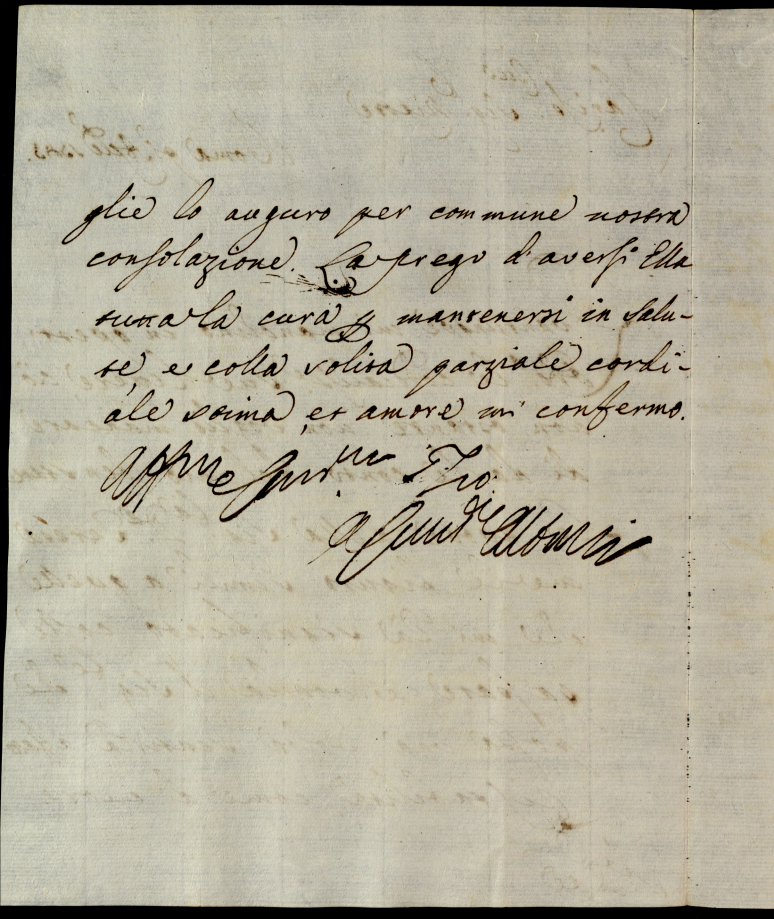 glie lo auguro per commune nostra
consolazione. La prego d'aversi Ella
tutta la cura p mantenersi in Salu-
te, e colla solita parziale cordi-
ale stima, et amore mi confermo.
Zio